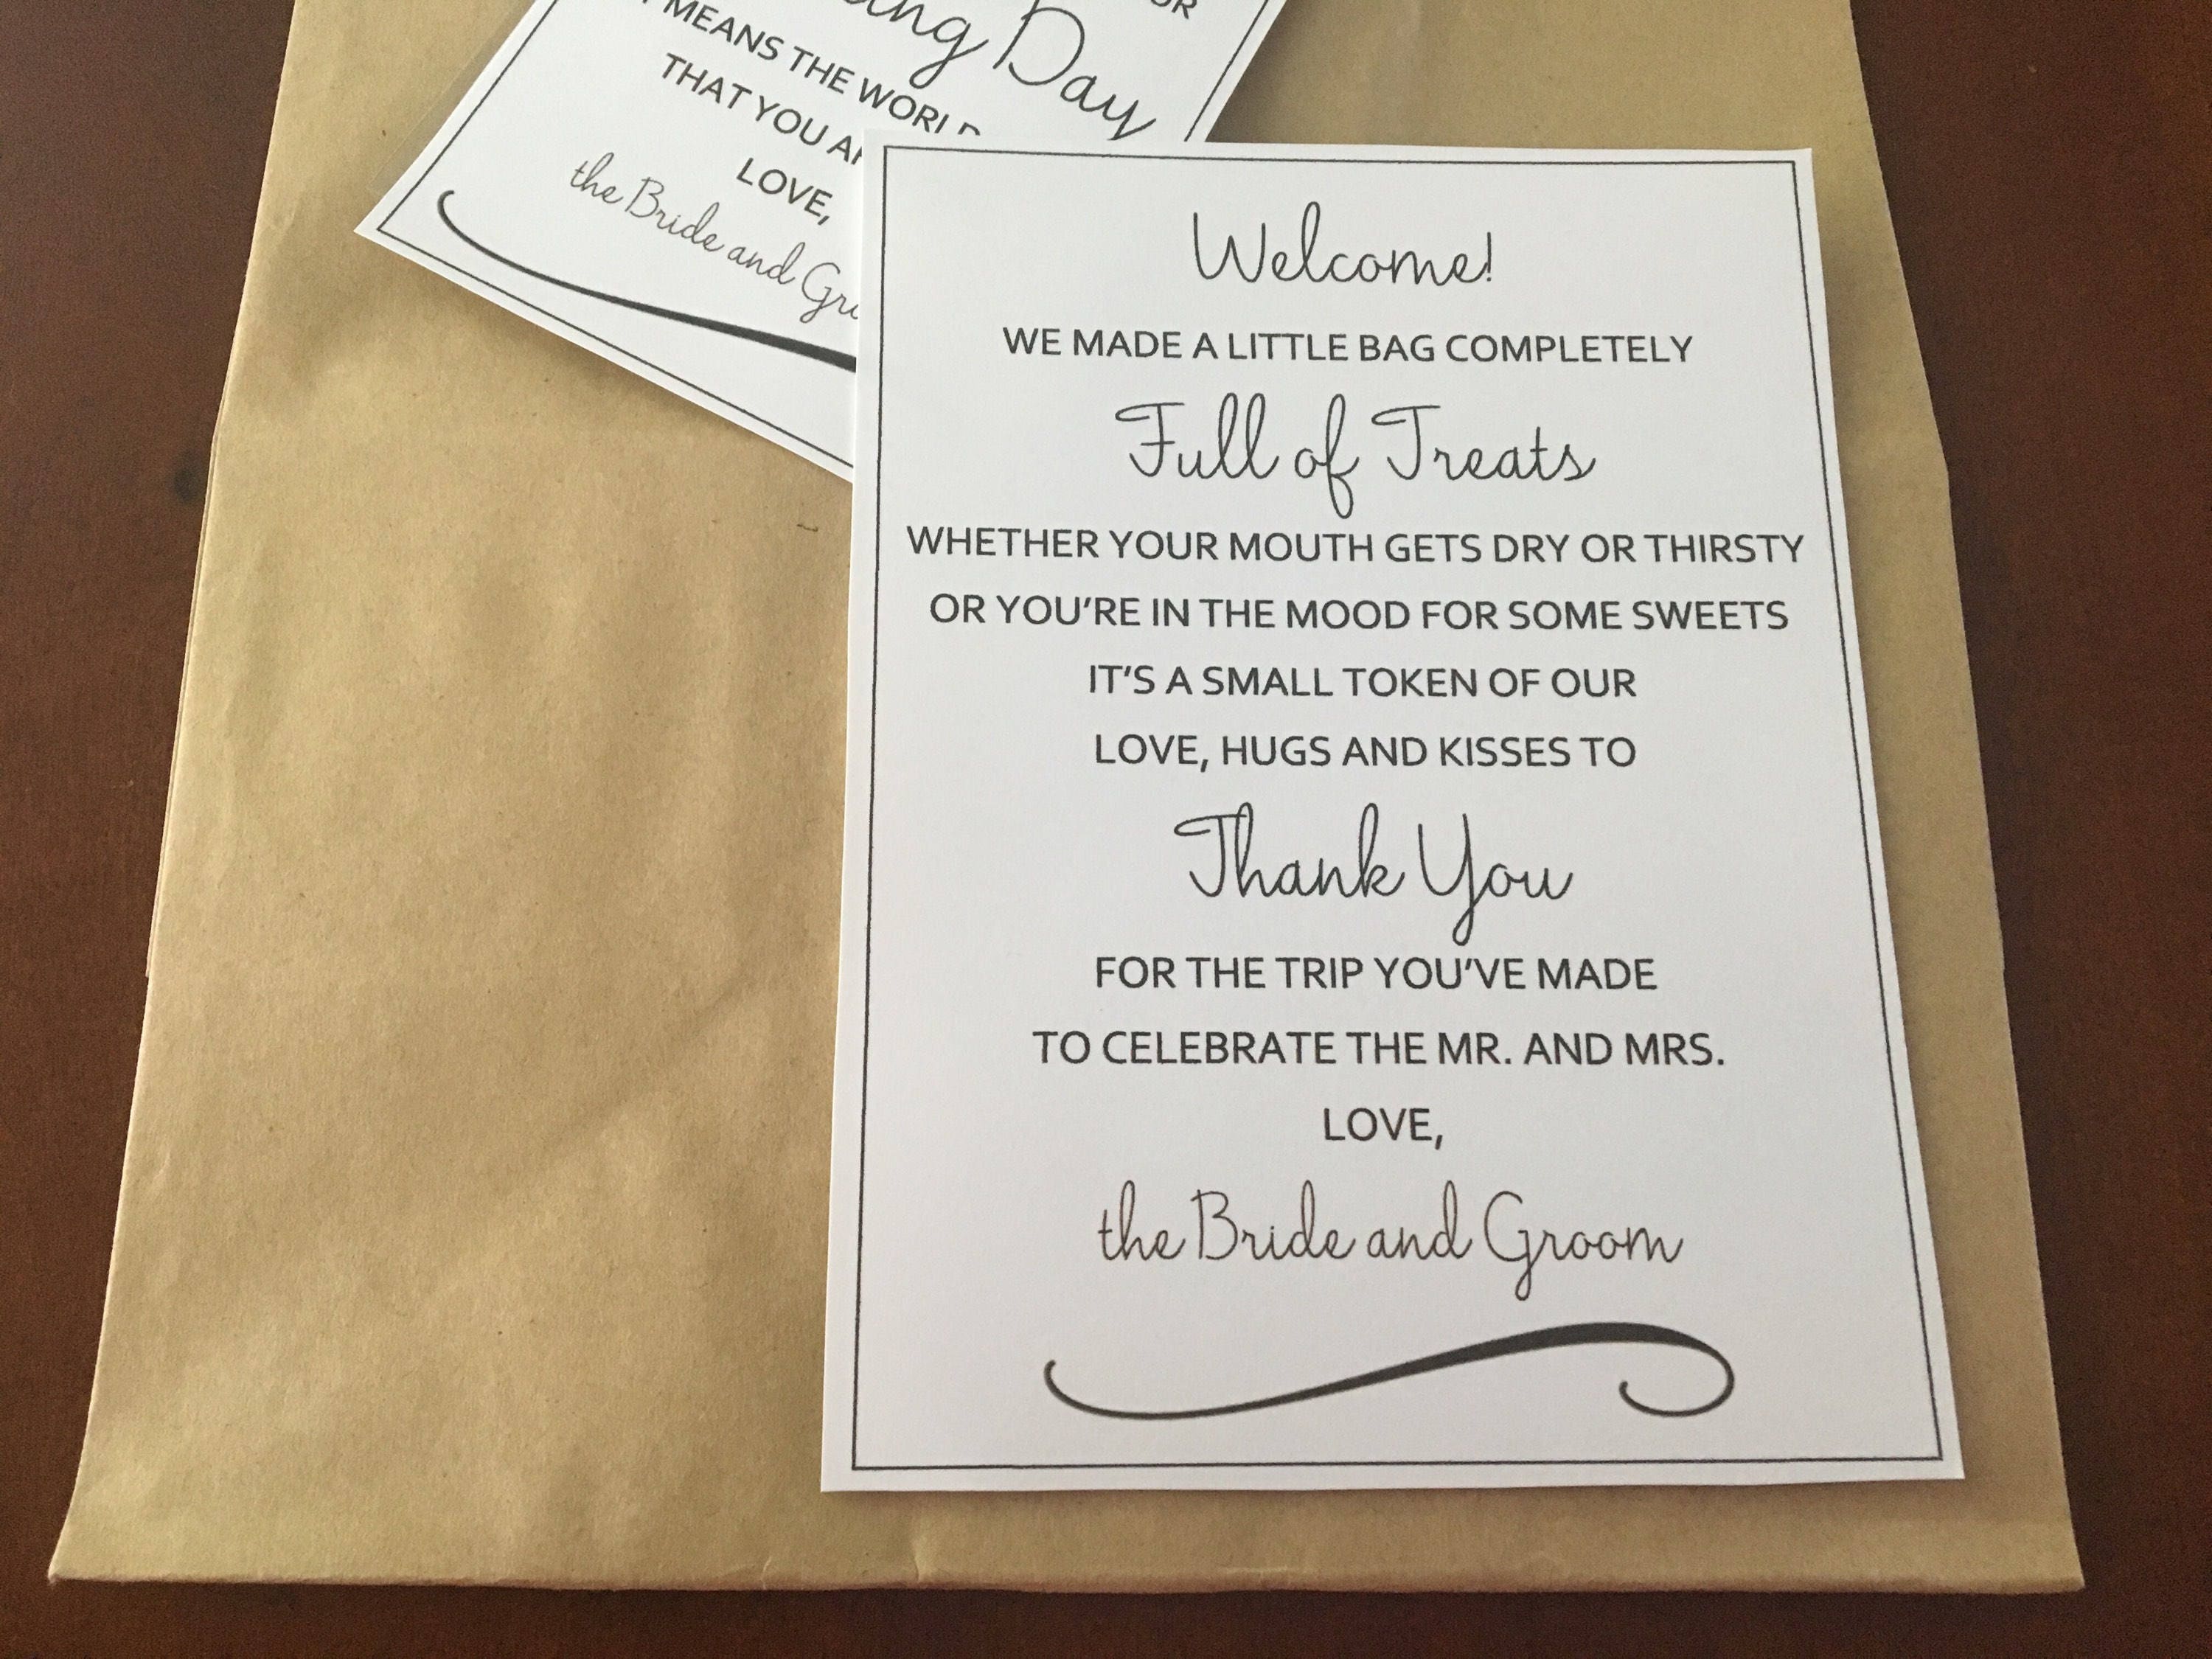 Day
MEANS THE
THAT YOU
LOVE,
the Bride and
Welcome!
WE MADE A LITTLE BAG COMPLETELY
Full of Treats
WHETHER YOUR MOUTH GETS DRY OR THIRSTY
OR YOU'RE IN THE MOOD FOR SOME SWEETS
IT'S A SMALL TOKEN OF OUR
LOVE, HUGS AND KISSES TO
Thank You
FOR THE TRIP YOU'VE MADE
TO CELEBRATE THE MR. AND MRS.
LOVE,
the Bride and Groom